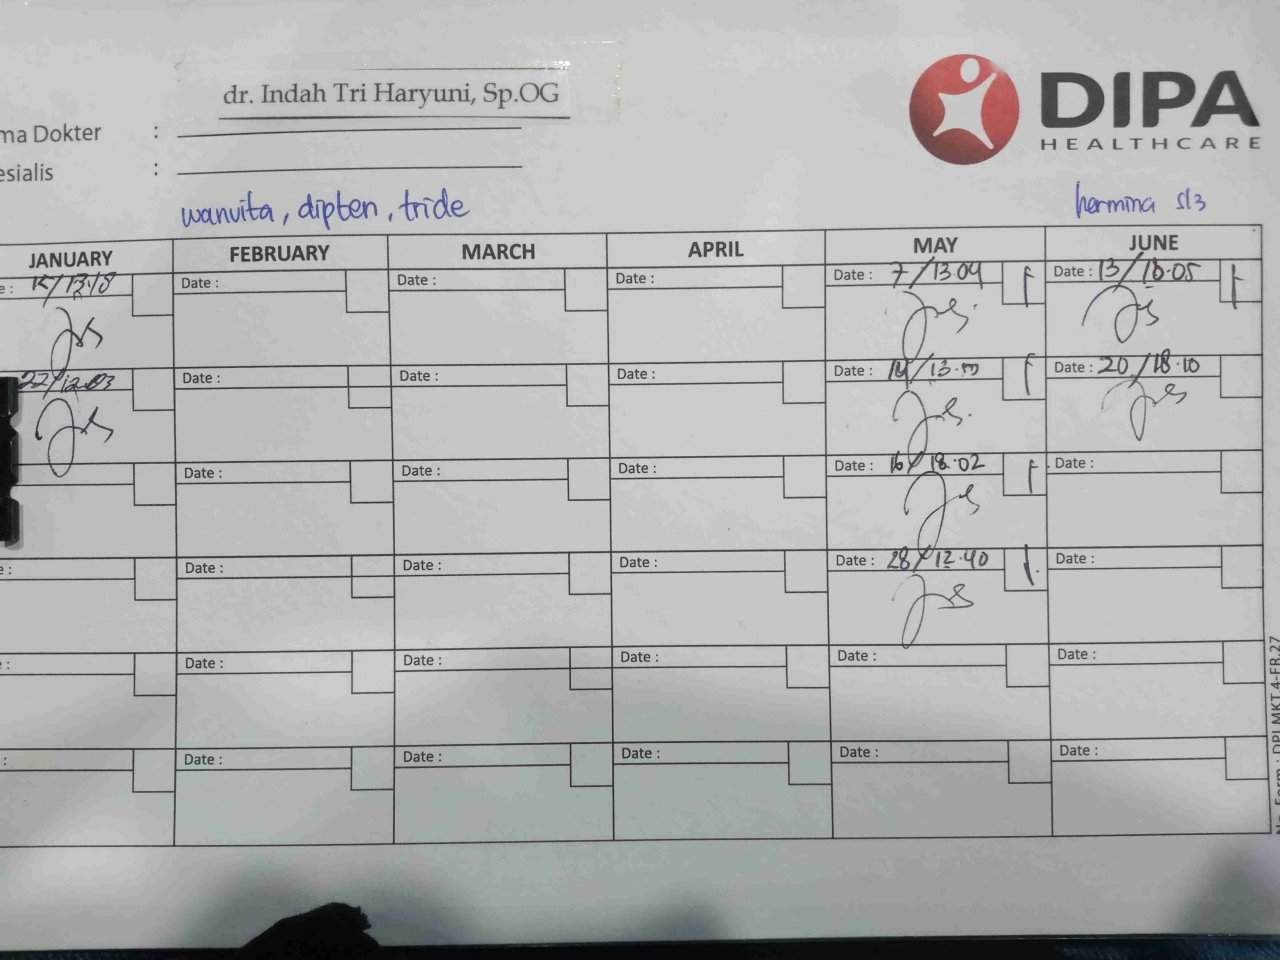 dr. Indah Tri Haryuni, Sp.OG
DIPA
HEALTHCARE
ma Dokter :
esialis :
wanvita, dipten, tride
hermina s/3
JANUARY FEBRUARY MARCH APRIL MAY JUNE
e : Date : Date : Date : Date : 7/13.04 Date : 13/18.05
22/12.03 Date : Date : Date : Date : Date : 20/18.10
Date : Date : Date : Date : 16/18.02 Date :
e : Date : Date : Date : Date : 28/12.40 Date :
e : Date : Date : Date : Date : Date :
: Date : Date : Date : Date : Date :
No. Form : DPI.MKT.4-FR.27